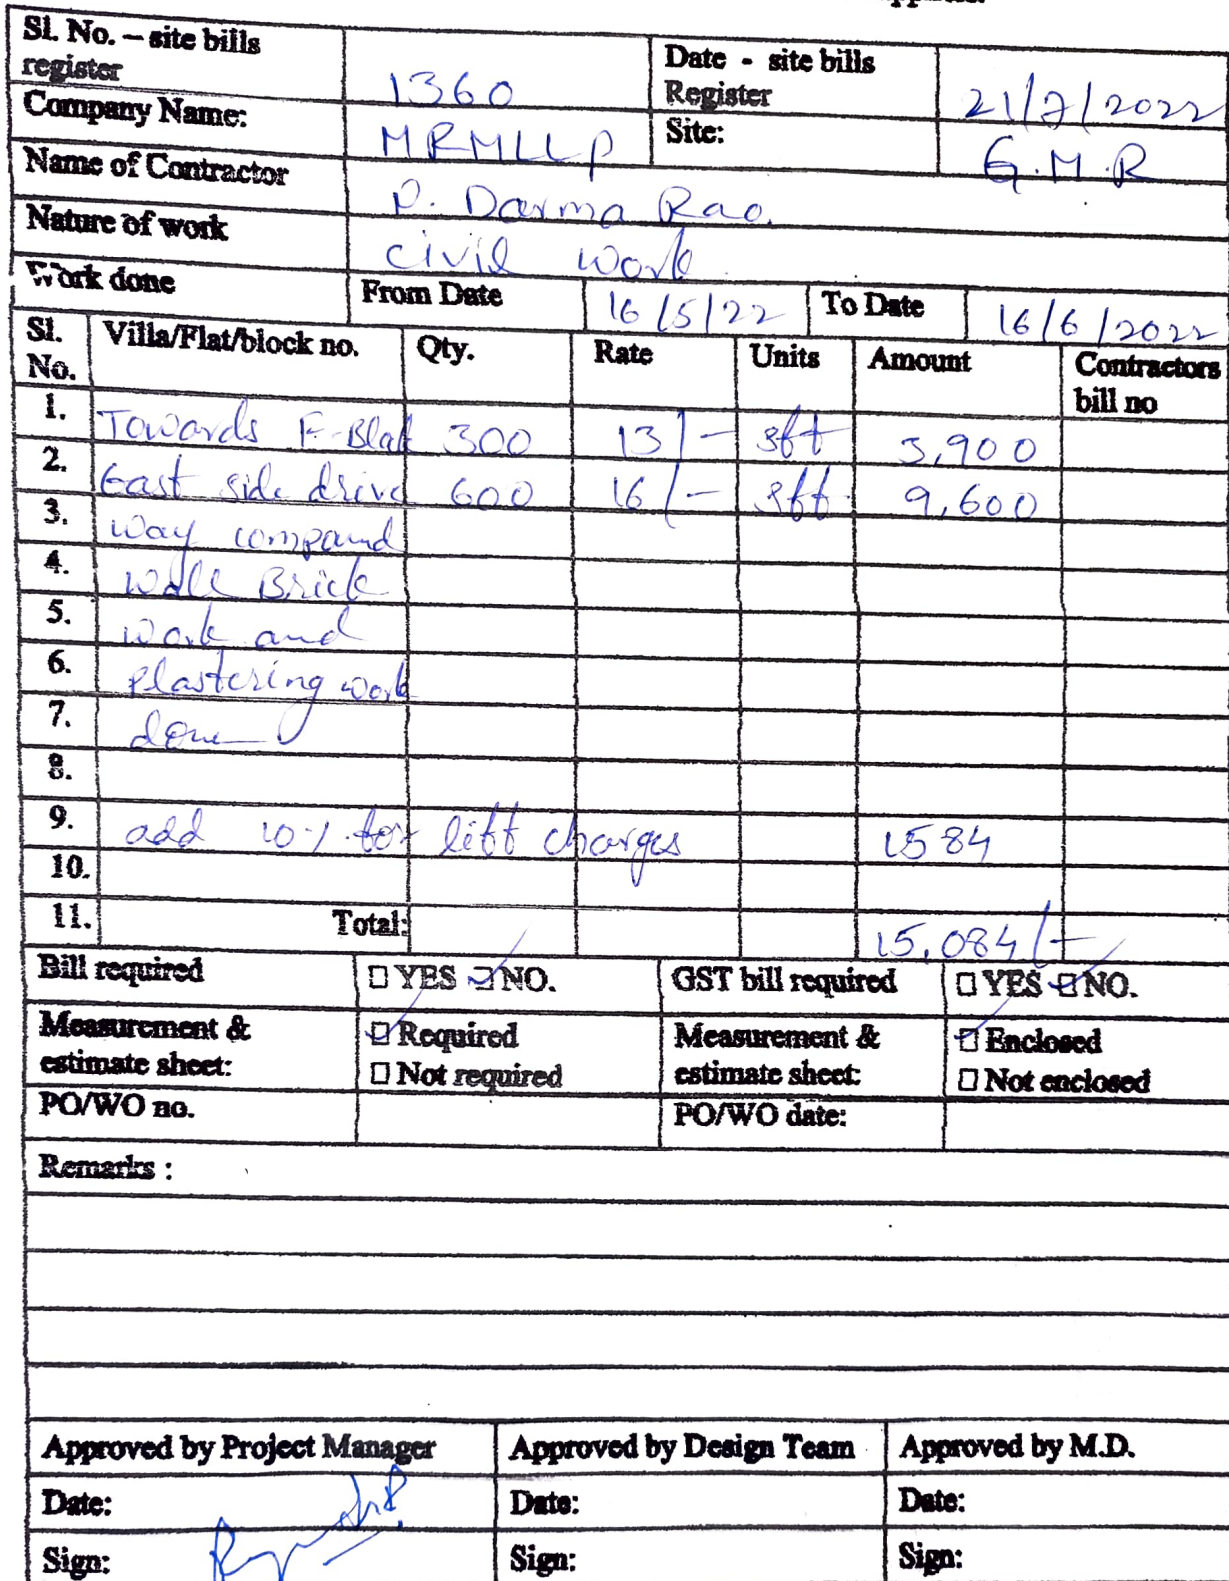 Sl. No. – site bills register 1360 Date - site bills Register 21/7/2022
Company Name: MRMLLP Site: G.M.R
Name of Contractor P. Darma Rao.
Nature of work civil work
Work done From Date 16/5/22 To Date 16/6/2022
Sl. No. Villa/Flat/block no. Qty. Rate Units Amount Contractors bill no
1. Towards F-Blak 300 13/- sft 3,900
2. East side drive 600 16/- sft 9,600
3. way compaund
4. Wall Brick
5. work and
6. Plastering work
7. done
8.
9. add 10% for lift charges 1584
10.
11. Total: 15,084/-
Bill required □ YES □ NO. GST bill required □ YES □ NO.
Measurement & estimate sheet: □ Required □ Not required Measurement & estimate sheet: □ Enclosed □ Not enclosed
PO/WO no. PO/WO date:
Remarks :
Approved by Project Manager Approved by Design Team Approved by M.D.
Date: Date: Date:
Sign: Sign: Sign: